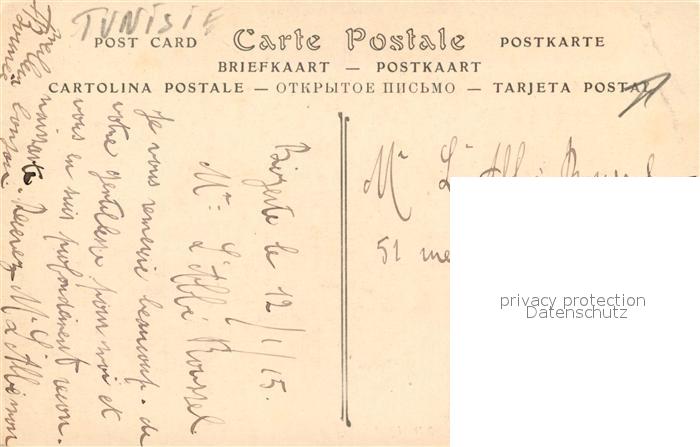 TUNISIE
POST CARD Carte Postale POSTKARTE
BRIEFKAART — POSTKAART
CARTOLINA POSTALE — ОТКРЫТОЕ ПИСЬМО — TARJETA POSTAL
Bizerte le 12/1/15.
Mr. L'Abbé Roussel
Je vous remercie beaucoup de
votre gentillesse pour moi et
vous en suis profondément recon-
naissante. Recevez Mr L'Abbé mon
Mr L'Abbé
51 rue
privacy protection
Datenschutz